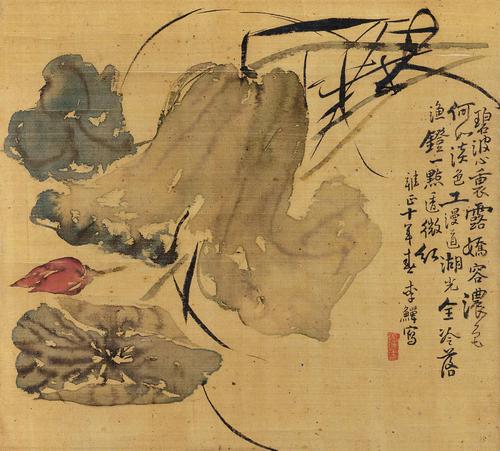 碧波心裏露嬌容濃色
何如淡色工漫道湖光全冷落
漁鐙一點透微紅
雍正十年春李鱓寫